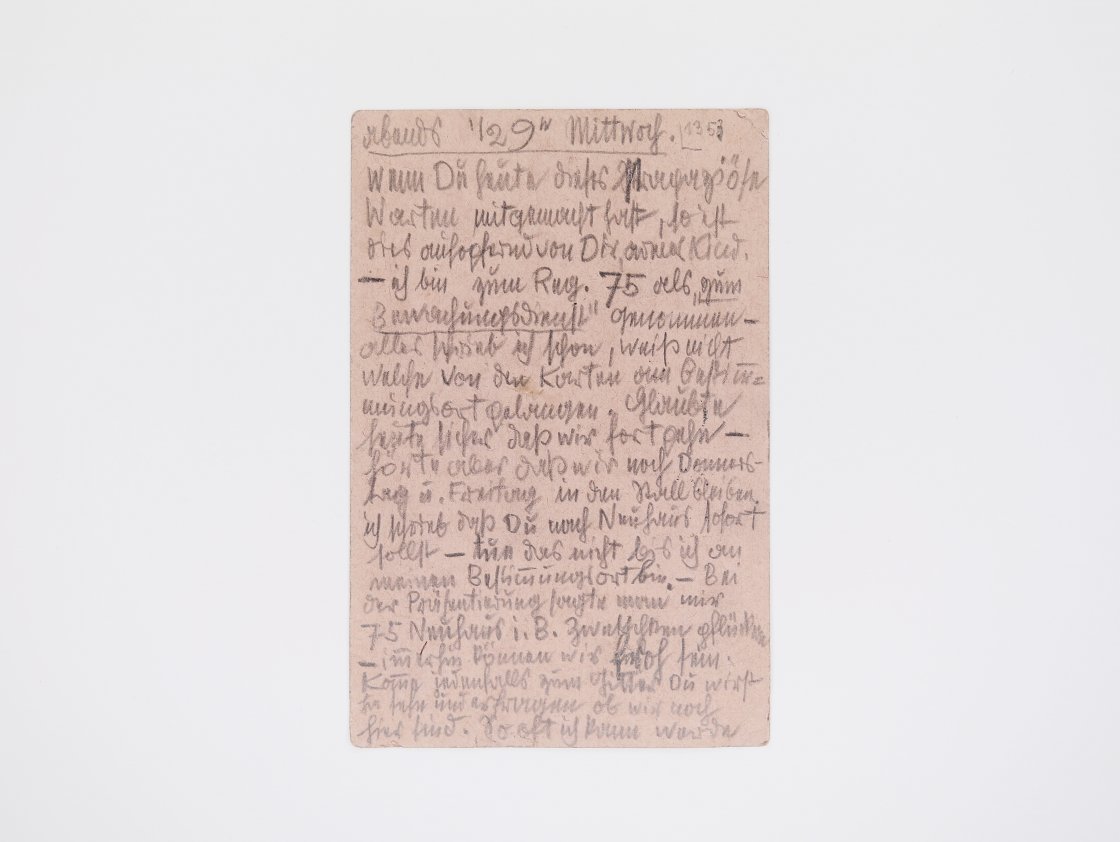 abends 1/2 9h Mittwoch. 1353
Wenn Du heute dieses
Warten mitgemacht hast, so ist
dies aufopfernd von Dir, armes Kind.
— ich bin zum Reg. 75 als „zum
Bewachungsdienst" genommen —
alles schrieb ich schon, weiß nicht
welche von den Karten am Bestim̅=
mungsort gelangen. Glaubte
heute sicher daß wir fortgehn —
hörte aber daß wir noch Donners-
tag u. Freitag in den Stall bleiben.
ich schrieb daß Du nach Neuhaus sofort
sollst — tue das nicht bis ich am
meinen Bestim̅ungsort bin. — Bei
der Präsentierung sagte man mir
75 Neuhaus i. B. Zwetschken pflücken
— im̅erhin können wir froh sein.
Kom̅e jedenfalls zum Gitter Du wirst
ja sehn und erfragen ob wir noch
hier sind. So oft ich kann werde